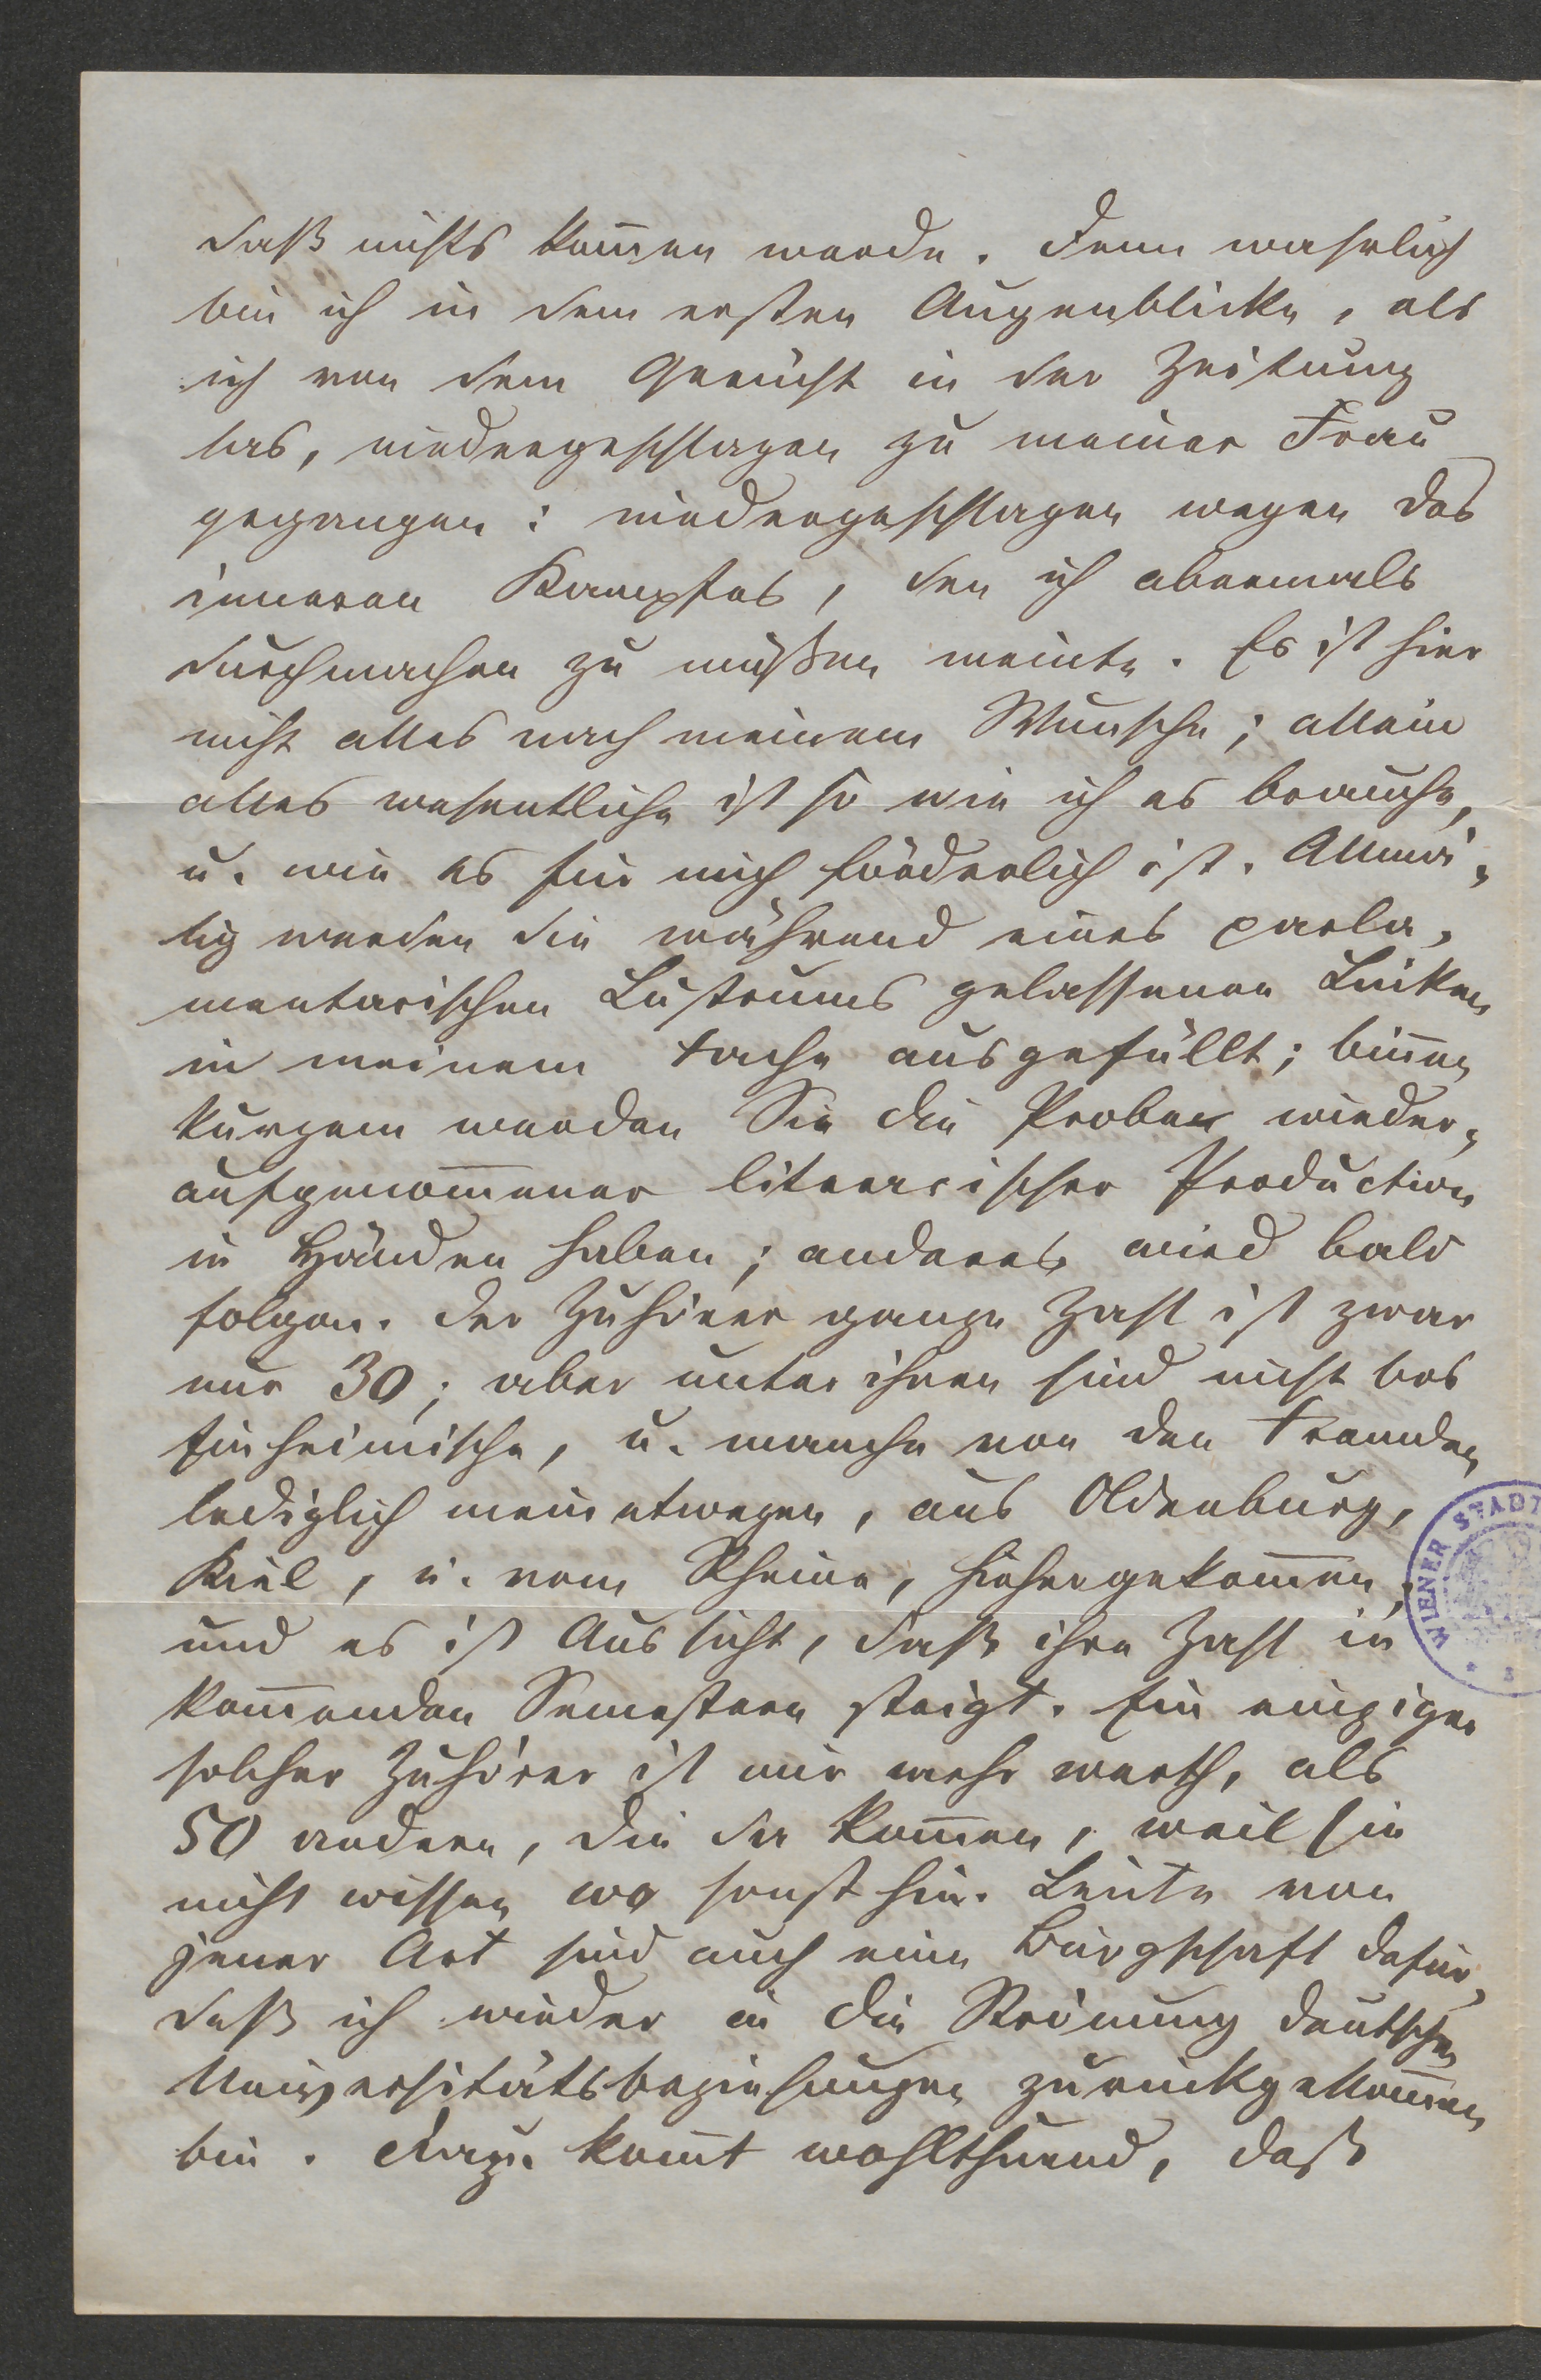 daß nichts kom̄en werde. Denn wahrlich
bin ich in dem ersten Augenblicke, als
ich von dem Gerücht in der Zeitung
las, niedergeschlagen zu meiner Frau
gegangen: niedergeschlagen wegen des
inneren Kampfes, den ich abermals
durchmachen zu müßen meinte. Es ist hier
nicht alles nach meinem Wunsche; allein
alles wesentliche ist so wie ich es brauche,
u. wie es für mich förderlich ist. Allmä-
lig werden die während eines parla-
mentarischen Lustrums gelassenen Lücken
in meinem Fache ausgefüllt; binnen
kurzem werden Sie die Proben wieder-
aufgenom̄ener literarischer Production
in Händen haben; anderes wird bald
folgen. Der Zuhörer ganze Zahl ist zwar
nur 30; aber unter ihnen sind nicht bos
Einheimische, u. manche von den Fremden
lediglich meinetwegen, aus Oldenburg,
Kiel, u. vom Rheine, hiehergekom̄en,
und es ist Aussicht, daß ihre Zahl in
kom̄enden Semestern steigt. Ein einziger
solcher Zuhörer ist mir mehr werth, als
50 andern, die da kom̄en, weil sie
nicht wissen wo sonst hin. Leute von
jener Art sind auch eine Bürgschaft dafür,
daß ich wieder in die Strömung deutscher
Universitätsbeziehungen zurückgekom̄en
bin. Dazu kom̄t wohlthuend, daß
WIENER STADT